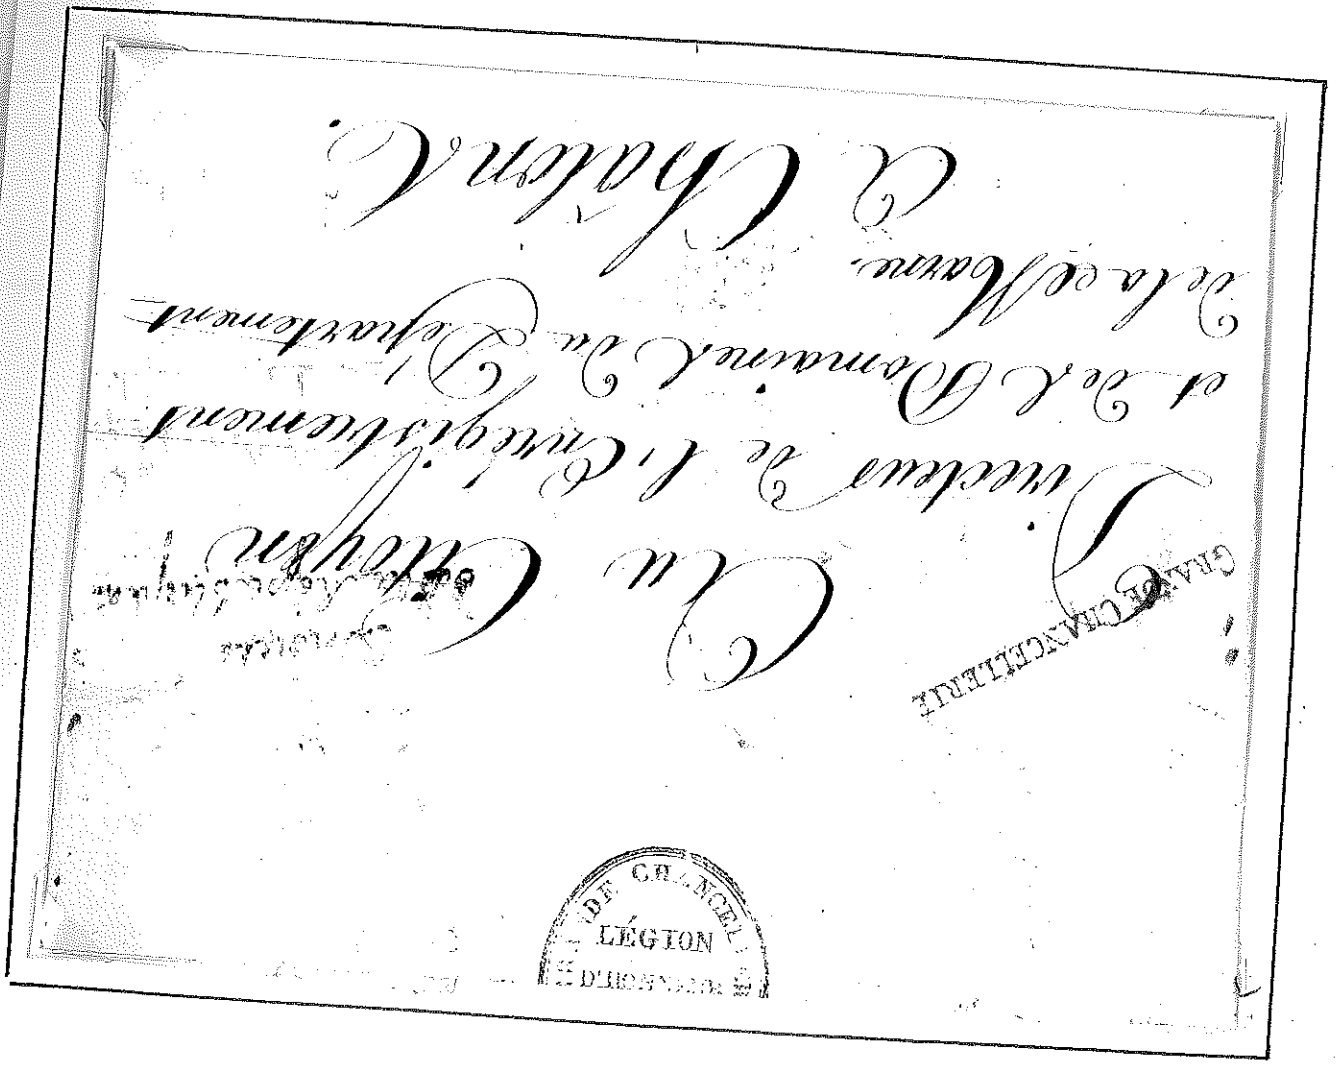 GRANDE CHANCELLERIE
Au Citoyen
Directeur de l'Enrégistrement
et des Domaines du Département
de la Marne.
A Châlons.
DE CHANCEL
LÉGION
D'HONNEUR